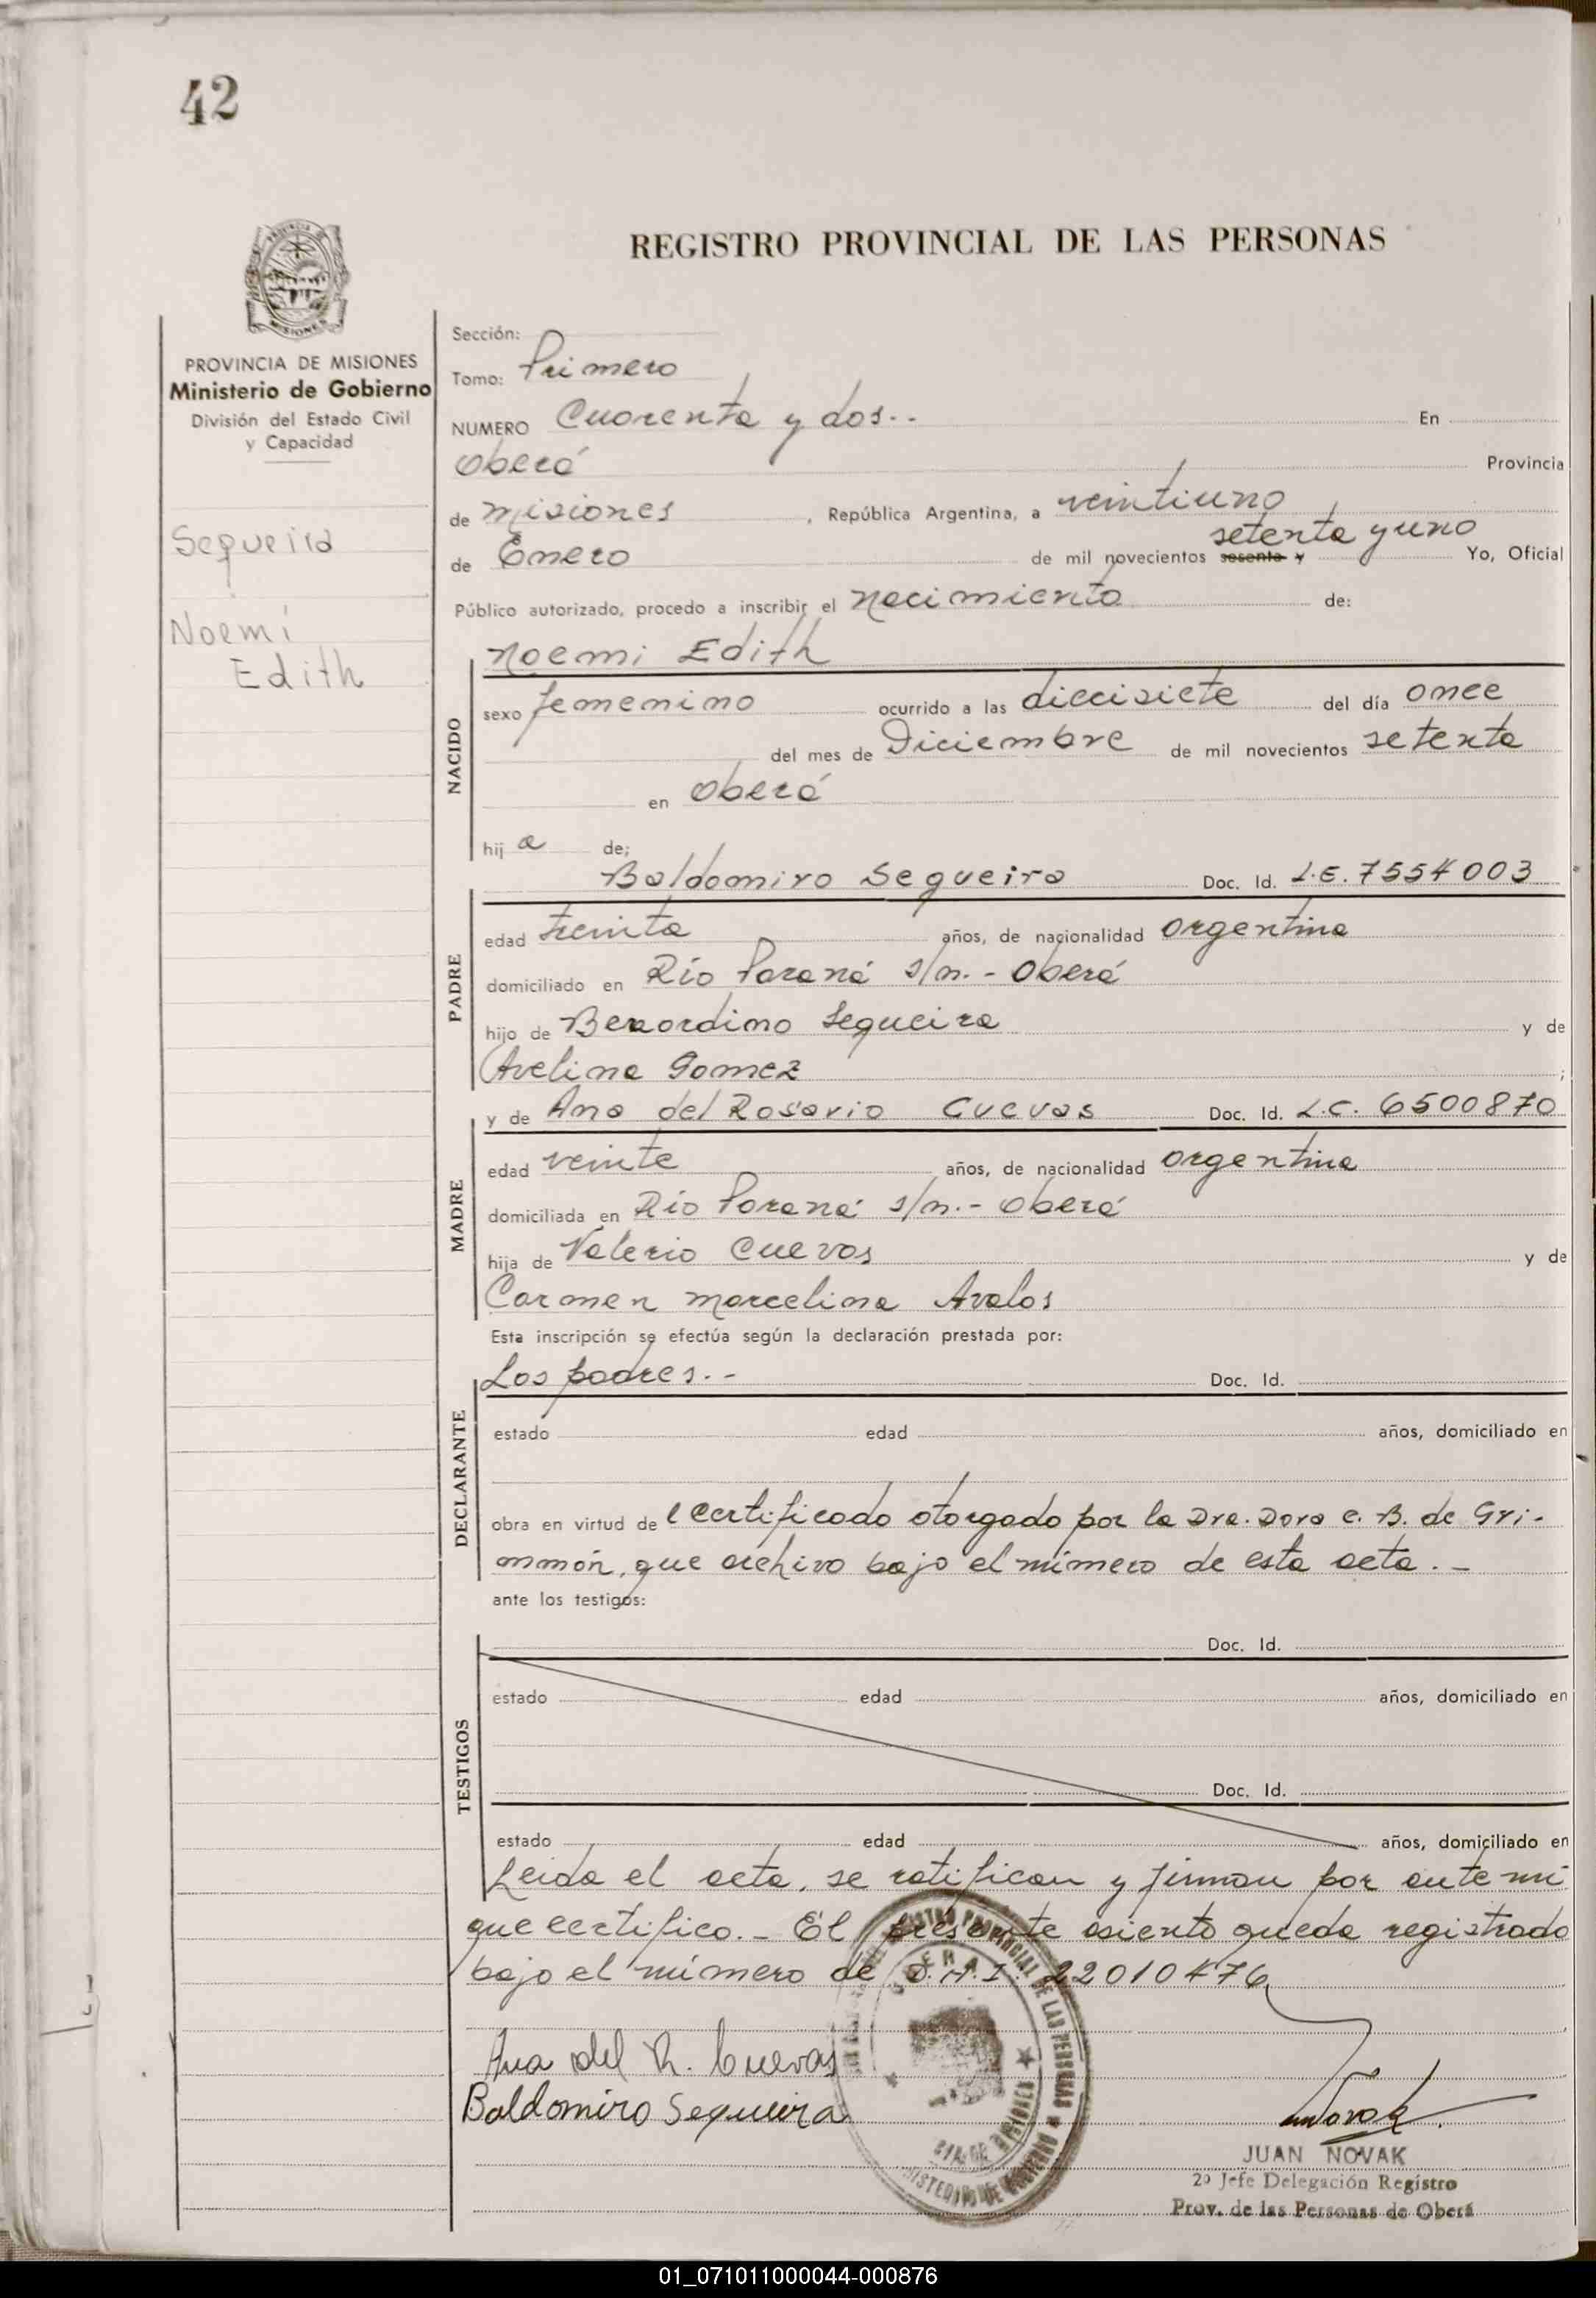 42
REGISTRO PROVINCIAL DE LAS PERSONAS
PROVINCIA DE MISIONES
Ministerio de Gobierno
División del Estado Civil
y Capacidad
Sequeira
Noemi
Edith
Sección:
Tomo: Primero
NUMERO Cuarenta y dos.- En
Oberá Provincia
de Misiones, República Argentina, a veintiuno
de Enero de mil novecientos sesenta y setenta y uno Yo, Oficial
Público autorizado, procedo a inscribir el nacimiento de:
Noemi Edith
NACIDO
sexo femenino ocurrido a las diecisiete del día once
del mes de Diciembre de mil novecientos setenta
en Oberá
hij a de;
Baldomiro Sequeira Doc. Id. L.E. 7554003
PADRE
edad treinta años, de nacionalidad argentina
domiciliado en Río Paraná s/n.- Oberá
hijo de Bernordino Sequeira y de
Avelina Gomez ;
y de Ana del Rosario Cuevas Doc. Id. L.C. 6500870
MADRE
edad veinte años, de nacionalidad argentina
domiciliada en Río Paraná s/n.- Oberá
hija de Valerio Cuevas y de
Carmen Marcelina Avalos
Esta inscripción se efectúa según la declaración prestada por:
Los padres.- Doc. Id.
DECLARANTE
estado edad años, domiciliado en
obra en virtud de l certificado otorgado por la Dra. Dora C. B. de Gri-
mmón, que archivo bajo el número de esta acta.-
ante los testigos:
Doc. Id.
TESTIGOS
estado edad años, domiciliado en
Doc. Id.
estado edad años, domiciliado en
Leida el acta, se ratifican y firman por ante mí
que certifico.- El presente asiento queda registrado
bajo el número de D.N.I. 22010476
Ana del R. Cuevas
Baldomiro Sequeira
Novak
JUAN NOVAK
2º Jefe Delegación Registro
Prov. de las Personas de Oberá
01_071011000044-000876